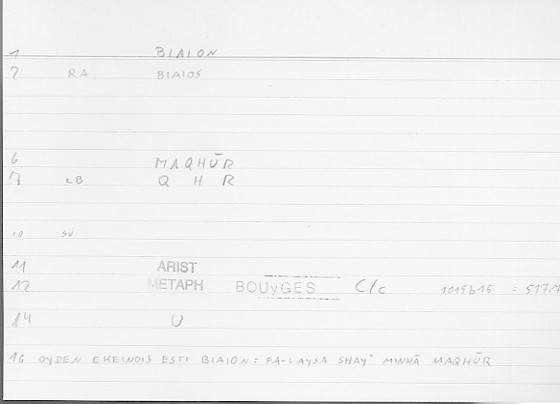 1 BIAION
2 RA BIAIOS
6 MAQHŪR
7 LB Q H R
10 SV
11 ARIST
12 METAPH BOUyGES C/c 1015b15 = 517:7
14 U
16 OYDEN EKEINOIS ESTI BIAION = FA-LAYSA SHAY' MINHĀ MAQHŪR